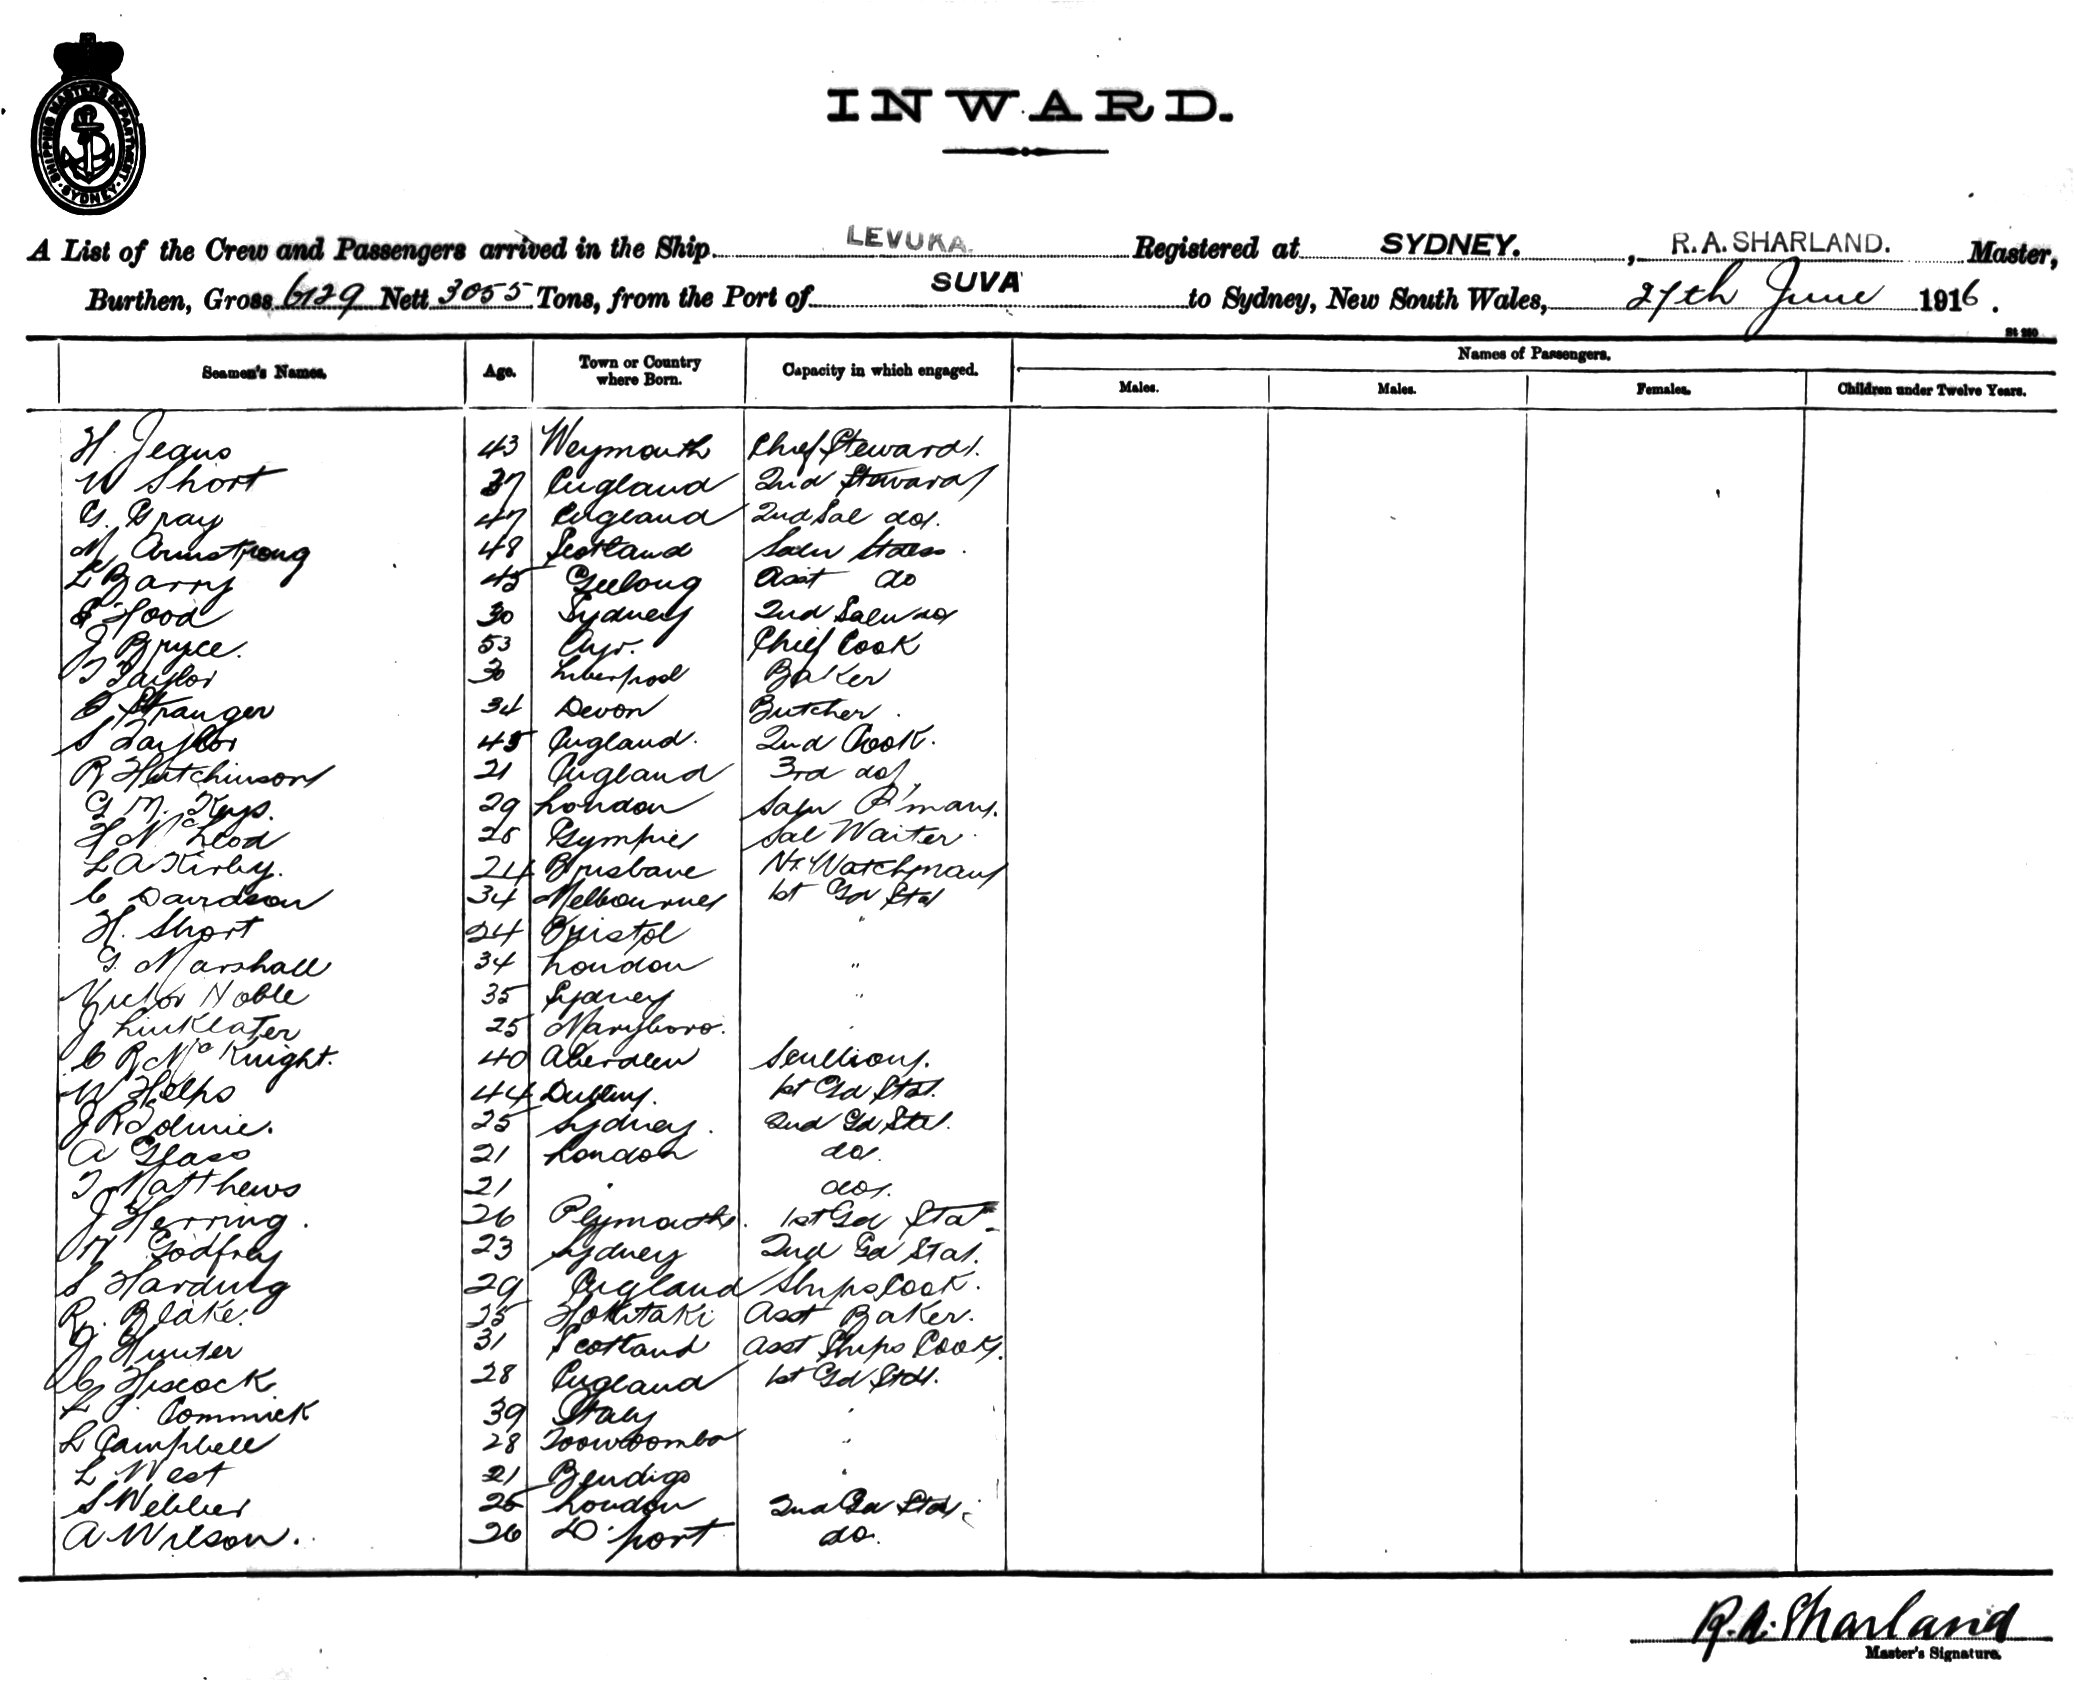 SHIPPING MASTERS DEPARTMENT. SYDNEY.
INWARD.
A List of the Crew and Passengers arrived in the Ship LEVUKA. Registered at SYDNEY. , R.A. SHARLAND. Master,
Burthen, Gross 6129 Nett 3055 Tons, from the Port of SUVA to Sydney, New South Wales, 27th June 1916.
St 260
Seamen's Names. Age. Town or Country where Born. Capacity in which engaged. Names of Passengers.
Males. Males. Females. Children under Twelve Years.
H. Jeans 43 Weymouth Chief Steward.
W Short 37 England 2nd Steward
G. Gray 47 England 2nd Sal do.
M Armstrong 48 Scotland Saln Stdess.
L Barry 45 Geelong Asst do
Hood 30 Sydney 2nd Saln do
J Bryce. 53 Ayr. Chief Cook
T Taylor 30 Liverpool Baker
Stranger 34 Devon Butcher.
S Taylor 45 England. 2nd Cook.
R Hutchinson 21 England 3rd do
G M. Keys. 29 London Saln P'man.
H McLeod 28 Gympie Sal Waiter.
L A Kirby. 24 Brisbane Nt Watchman
C Davidson 34 Melbourne 1st Gd Std
H. Short 24 Bristol "
G. Marshall 34 London "
Victor Noble 35 Sydney "
J Linklater 25 Maryboro. "
C R McKnight. 40 Aberdeen Scullion.
W Helps 44 Dublin. 1st Gd Std.
J R Tolmie. 25 Sydney. 2nd Gd Std.
A Glass 21 London do.
T Matthews 21 " do.
J Herring. 26 Plymouth. 1st Gd Std
W Godfrey 23 Sydney 2nd Gd Std.
S Harding 29 England Ships Cook.
R. Blake. 25 Hokitaki Asst Baker.
J Hunter 31 Scotland Asst Ships Cook.
C Hiscock 28 England 1st Gd Std.
L P. Commick 39 Italy "
L Campbell 28 Toowoomba "
L West 21 Bendigo "
S Webber 25 London 2nd Gd Std.
A Wilson. 26 D. port do.
R.A. Sharland
Master's Signature.